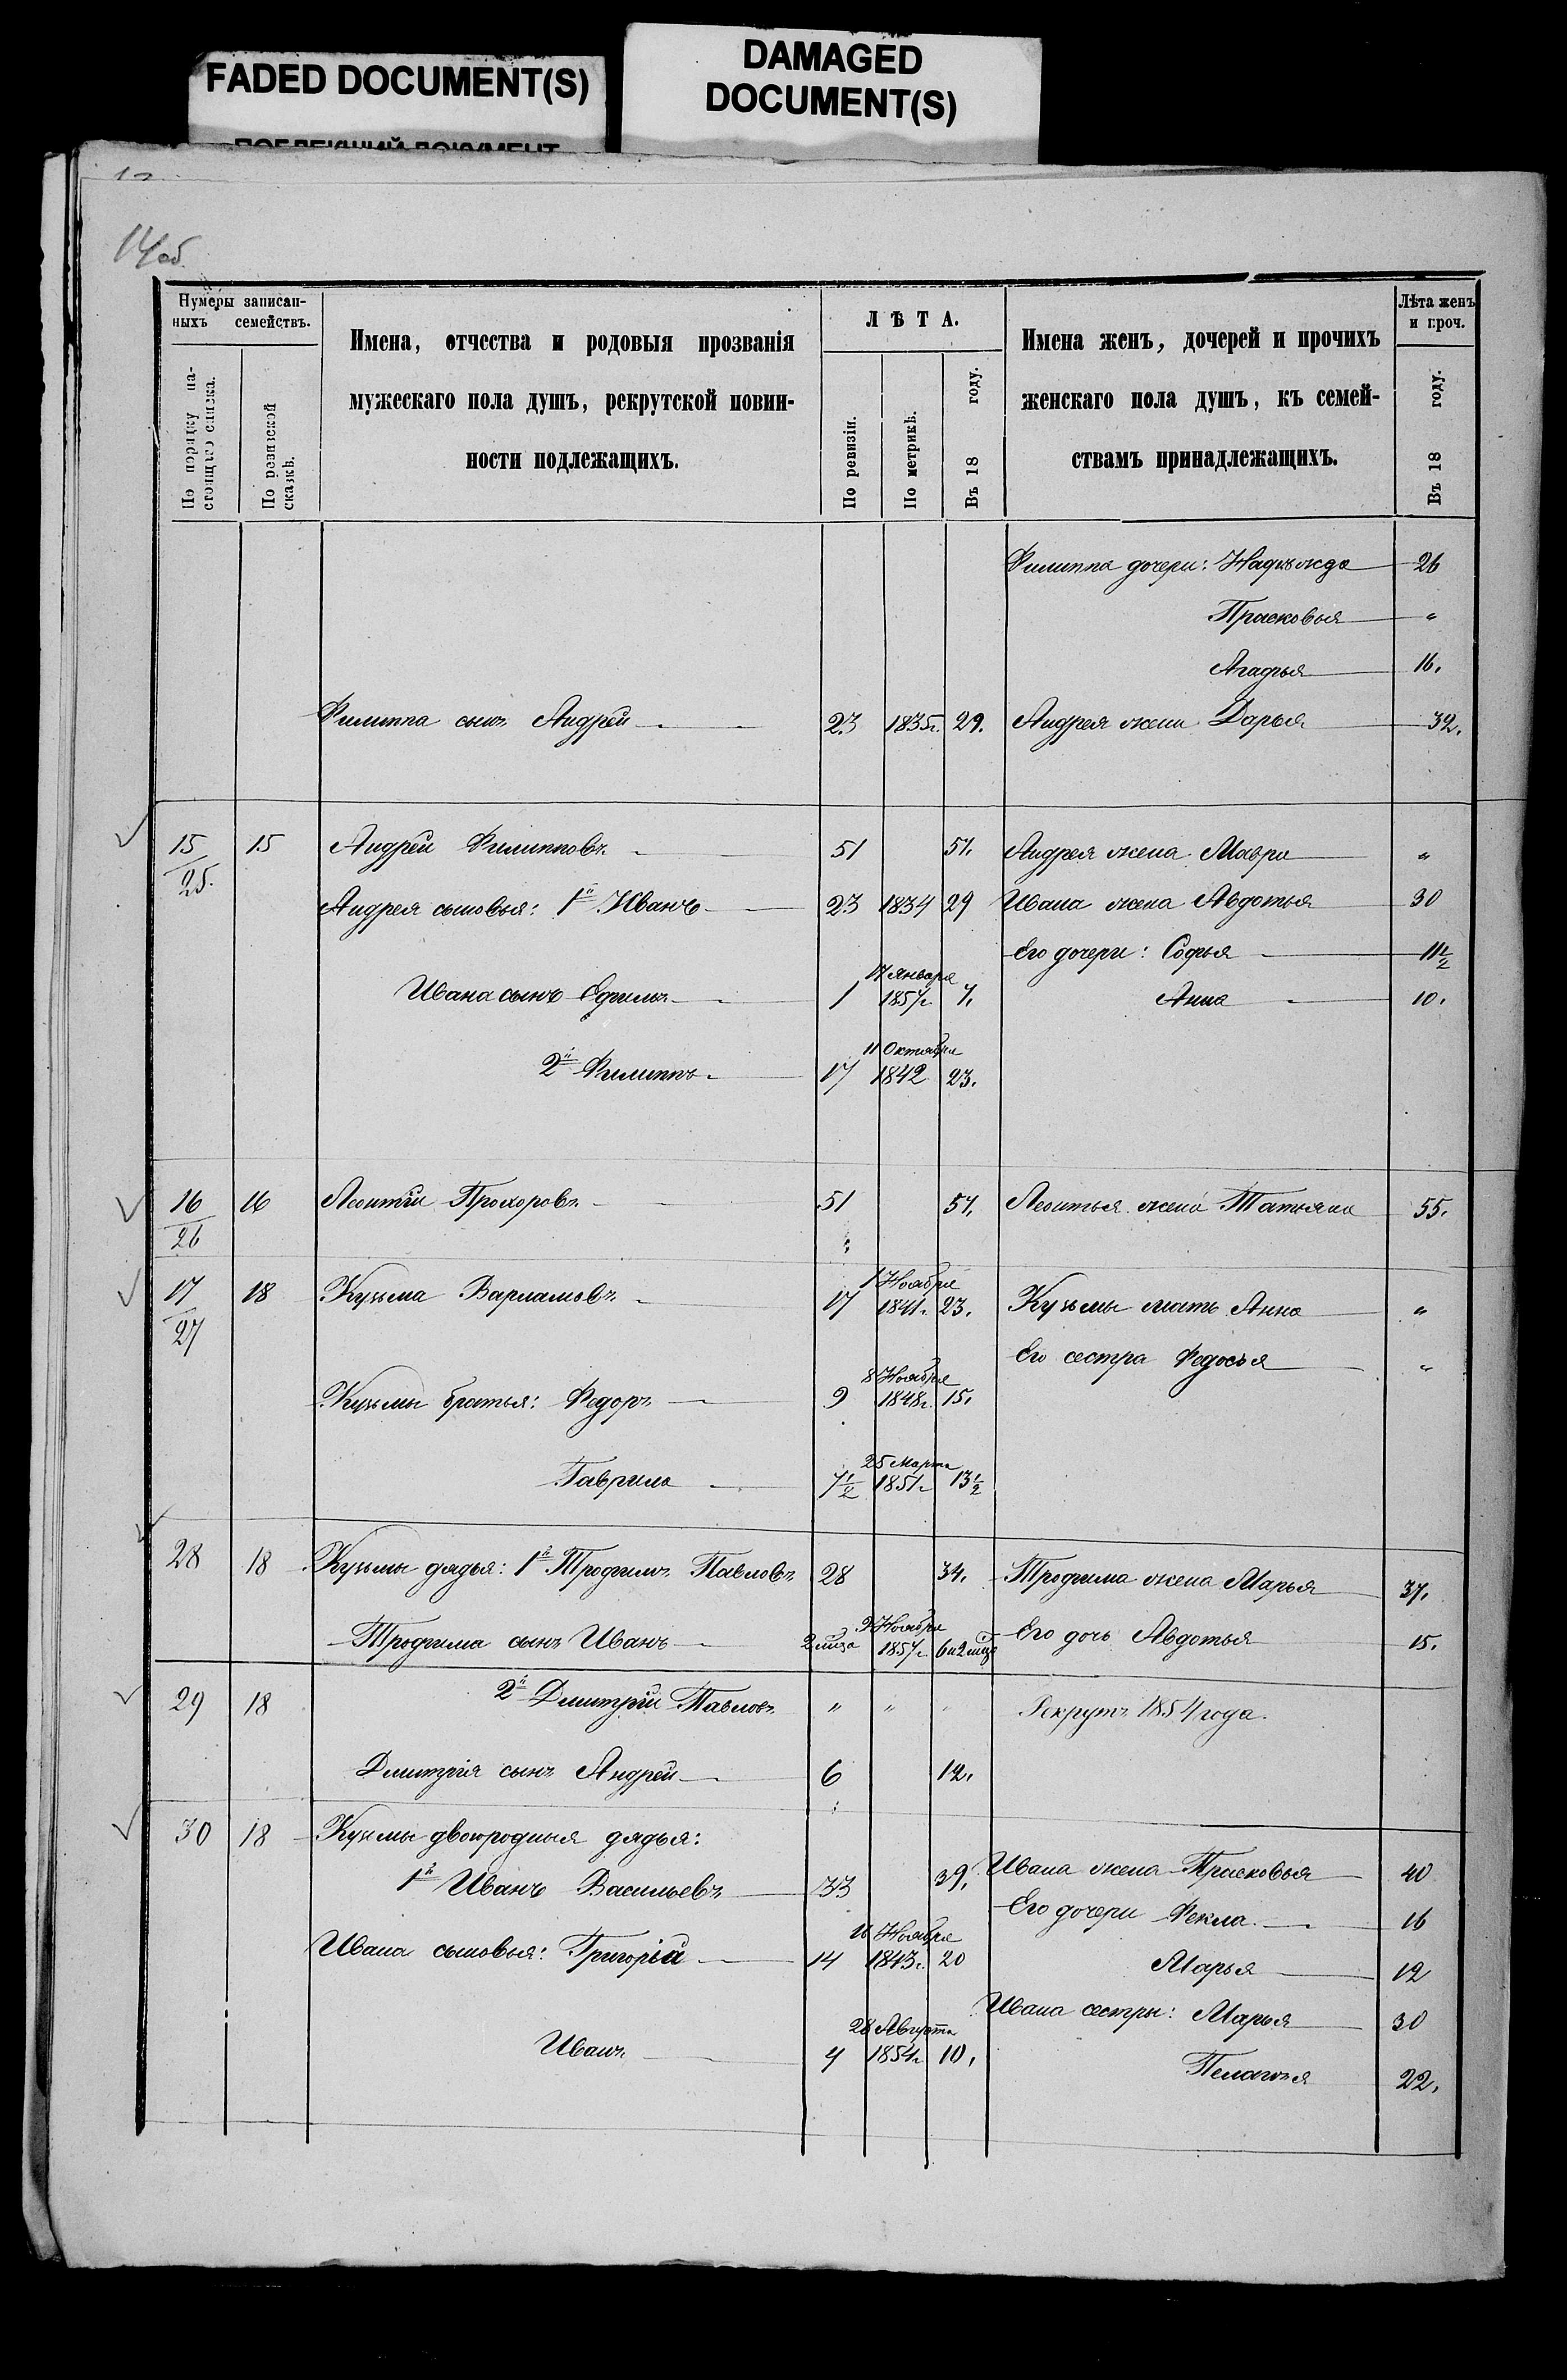 FADED DOCUMENT(S)
DAMAGED
DOCUMENT(S)
14 об
Нумеры записан-
ныхъ семействъ.
По порядку на-
стоящаго списка.
По ревизской
сказкѣ.
Имена, отчества и родовыя прозванія
мужескаго пола душъ, рекрутской повин-
ности подлежащихъ.
ЛѢТА.
По ревизіи.
По метрикѣ.
Въ 18 году.
Имена женъ, дочерей и прочихъ
женскаго пола душъ, къ семей-
ствамъ принадлежащихъ.
Лѣта женъ
и проч.
Въ 18 году.
Филиппа дочери: Надѣжда 26
Прасковья "
Агафья 16.
Филиппа сынъ Андрей 23 1835г. 29. Андрея жена Дарья 32.
15/25. 15 Андрей Филипповъ 51 57. Андрея жена Мавра "
Андрея сыновья: 1й Иванъ 23 1834 29 Ивана жена Авдотья 30
Его дочери: Софья 11½
17 Января
Ивана сынъ Ефимъ 1 1857г 7. Анна 10.
11 Октября
2й Филиппъ 17 1842 23.
16/26 16 Леонтій Прохоровъ 51 57. Леонтья жена Татьяна 55.
1 Ноября
17/27 18 Кузьма Варламовъ 17 1841г. 23. Кузьмы мать Анна "
Его сестра Федосья "
8 Ноября
Кузьмы братья: Федоръ 9 1848г. 15.
25 Марта
Гаврила 7½ 1851г 13½
28 18 Кузьмы дядья: 1й Трофимъ Павловъ 28 34. Трофима жена Марья 37.
9 Ноября
Трофима сынъ Иванъ 2 мѣза 1857г 6 и 2 мѣц Его дочь Авдотья 15.
29 18 2й Дмитрій Павловъ " " " Рекрутъ 1854 года.
Дмитрія сынъ Андрей 6 12.
30 18 Кузмы двоюродныя дядья:
1й Иванъ Васильевъ 33 39. Ивана жена Прасковья 40
Его дочери Фекла 16
16 Ноября
Ивана сыновья: Григорій 14 1843г. 20
Марья 12
Ивана сестры: Марья 30
28 Августа
Иванъ 4 1854г 10.
Пелагея 22.